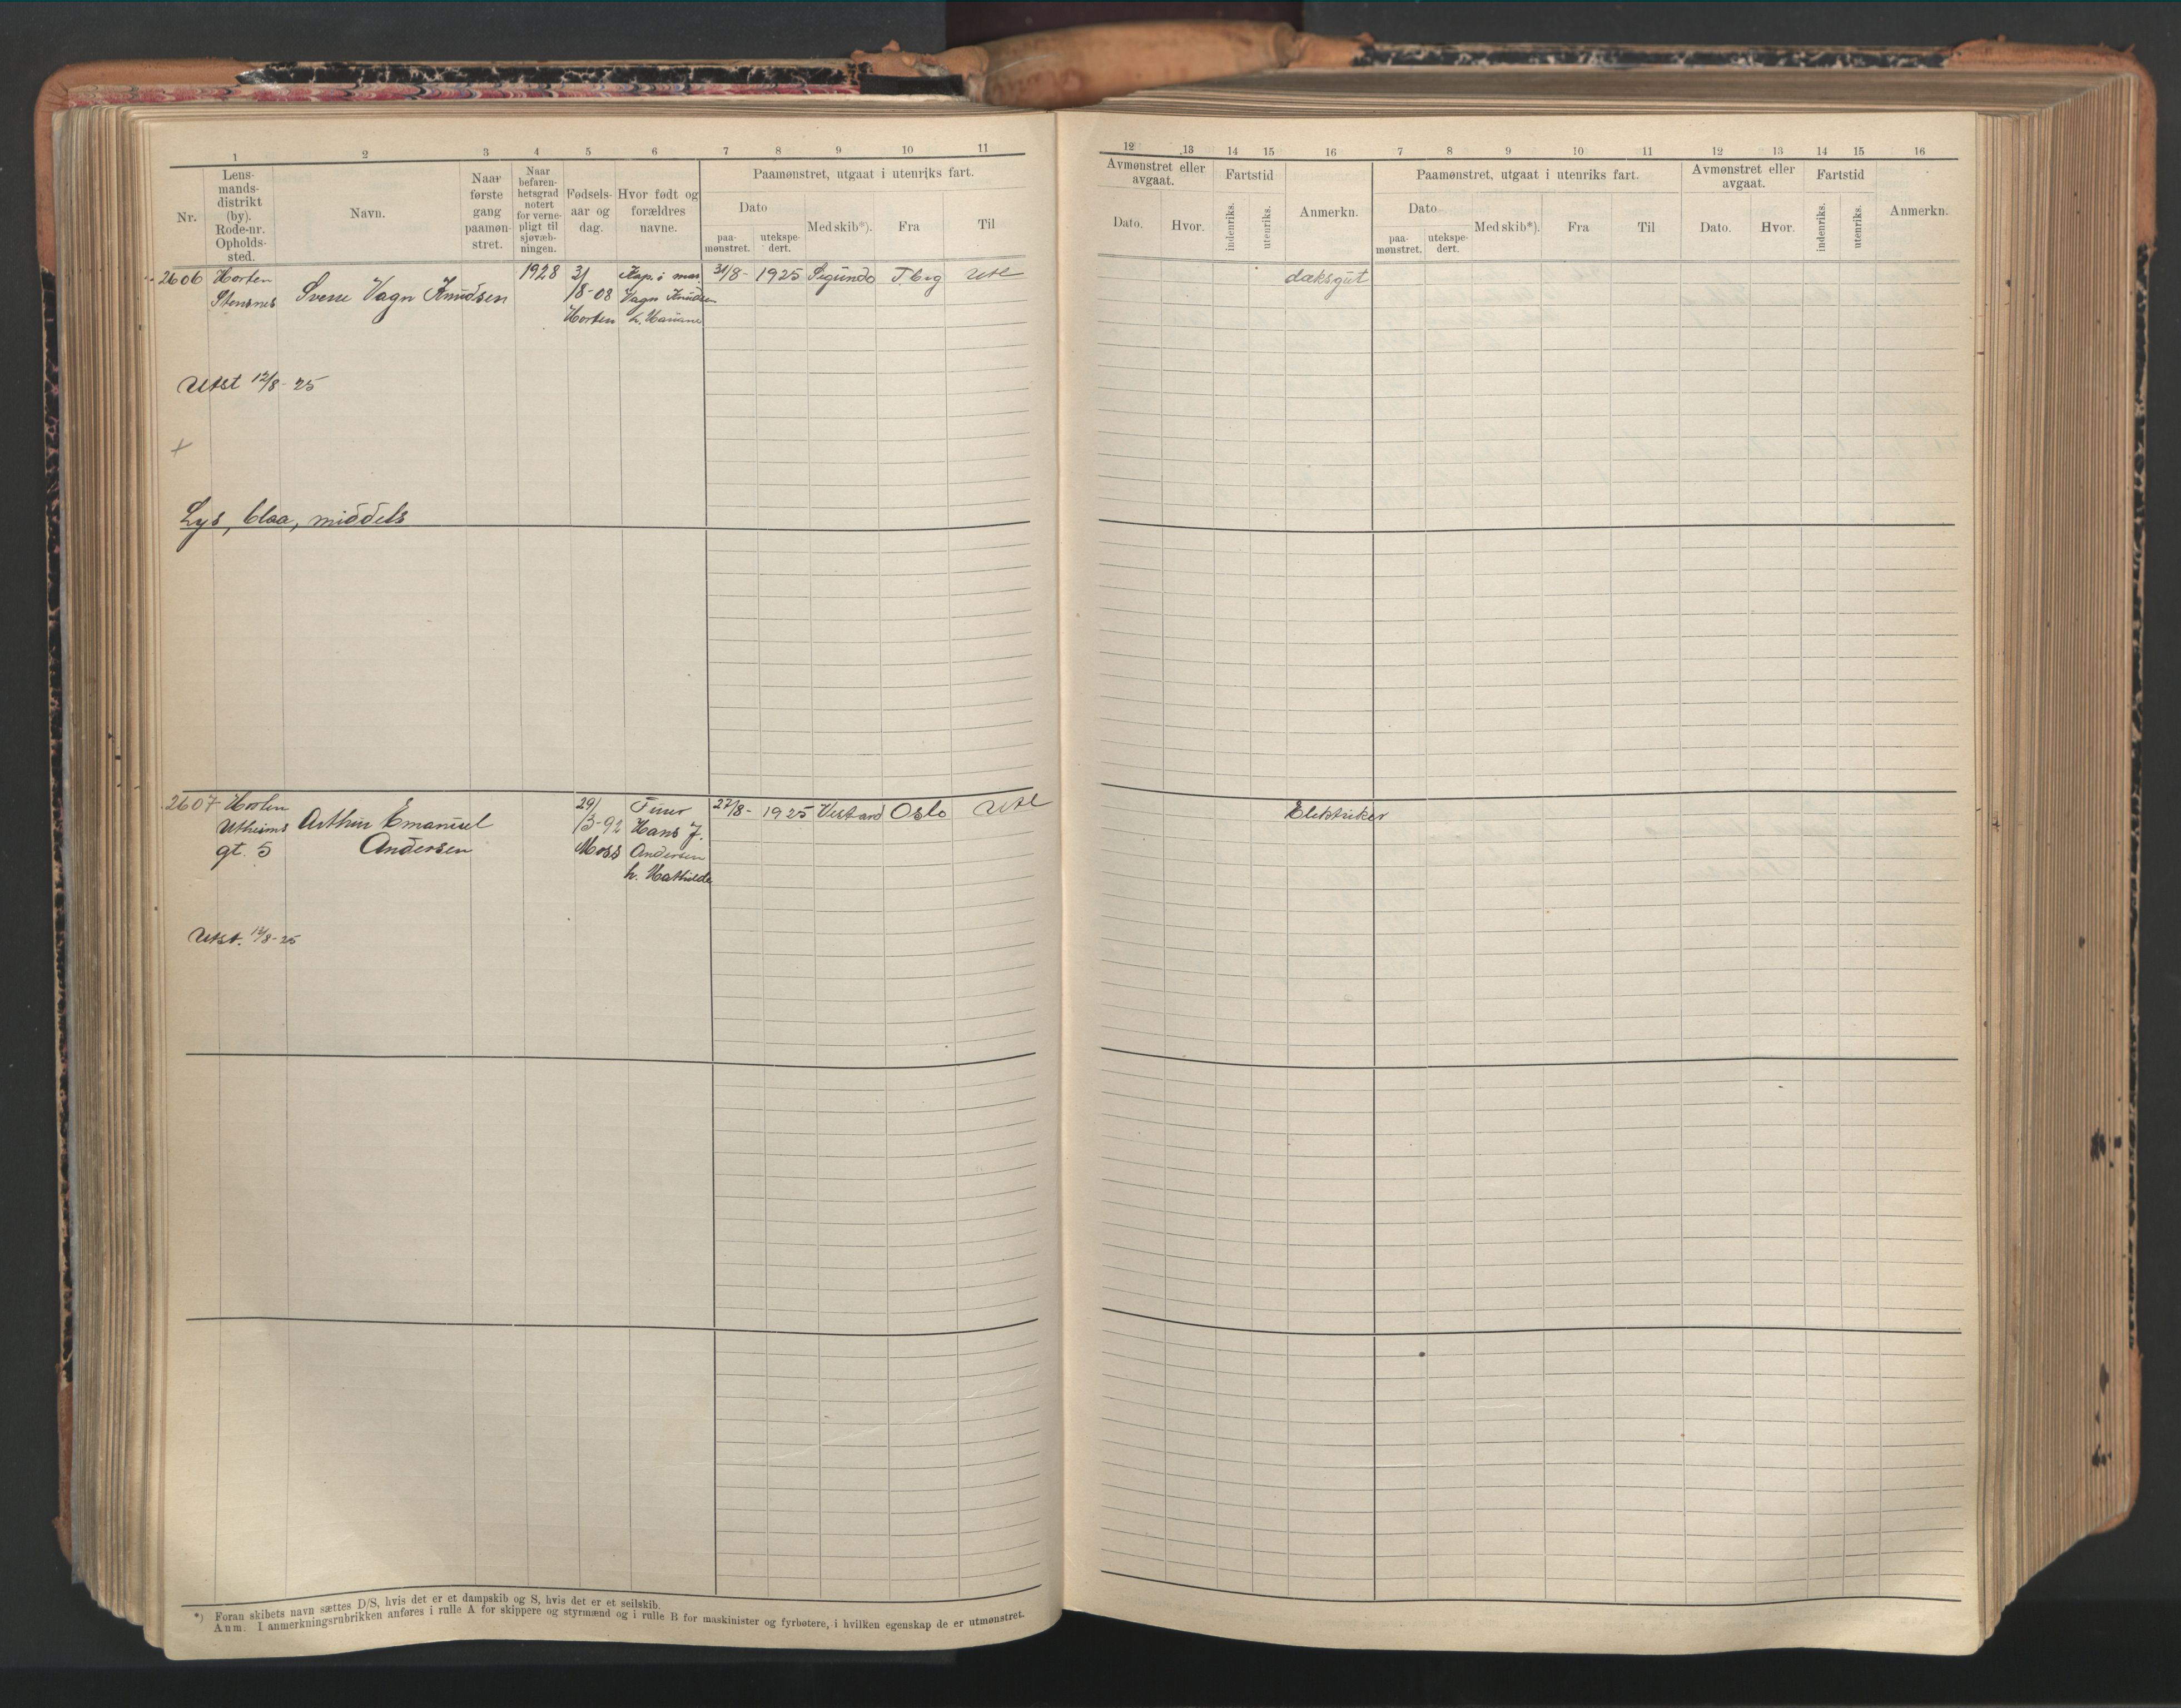 1 2 3 4 5 6 7 8 9 10 11
Nr.
Lens-
mands-
distrikt
(by).
Rode-nr.
Opholds-
sted.
Navn.
Naar
første
gang
paamøn-
stret.
Naar
befaren-
hetsgrad
notert
for verne-
pligt til
sjøvæb-
ningen.
Fødsels-
aar og
dag.
Hvor født og
forældres
navne.
Paamønstret, utgaat i utenriks fart.
Dato
paa-
mønstret.
utekspe-
dert.
Med skib*).
Fra
Til
2606 Horten 1928 31 Kap. i mar 31/8- 1925 Segundo T.b.g Utl
Stensnes Sverre Vagn Knudsen /8-08 Vagn Knudsen
Horten h. Mariane
Utst 12/8-25
+
Lys, blaa, middels
2607 Horten 29/ 27/8- 1925 Vestard Oslo Utl
Arthur Emanuel /3-92 Hans J.
gt. 5 Andersen Moss Andersen
h. Mathilde
Utst. 12/8-25
*) Foran skibets navn sættes D/S, hvis det er et dampskib og S, hvis det er et seilskib.
Anm. I anmerkningsrubrikken anføres i rulle A for skippere og styrmænd og i rulle B for maskinister og fyrbøtere, i hvilken egenskap de er utmønstret.
12 13 14 15 16 7 8 9 10 11 12 13 14 15 16
Avmønstret eller
avgaat.
Dato.
Hvor.
Fartstid
indenriks.
utenriks.
Anmerkn.
Paamønstret, utgaat i utenriks fart.
Dato
paa-
mønstret.
utekspe-
dert.
Med skib*).
Fra
Til
Avmønstret eller
avgaat.
Dato.
Hvor.
Fartstid
indenriks.
utenriks.
Anmerkn.
dæksgut
Elektriker